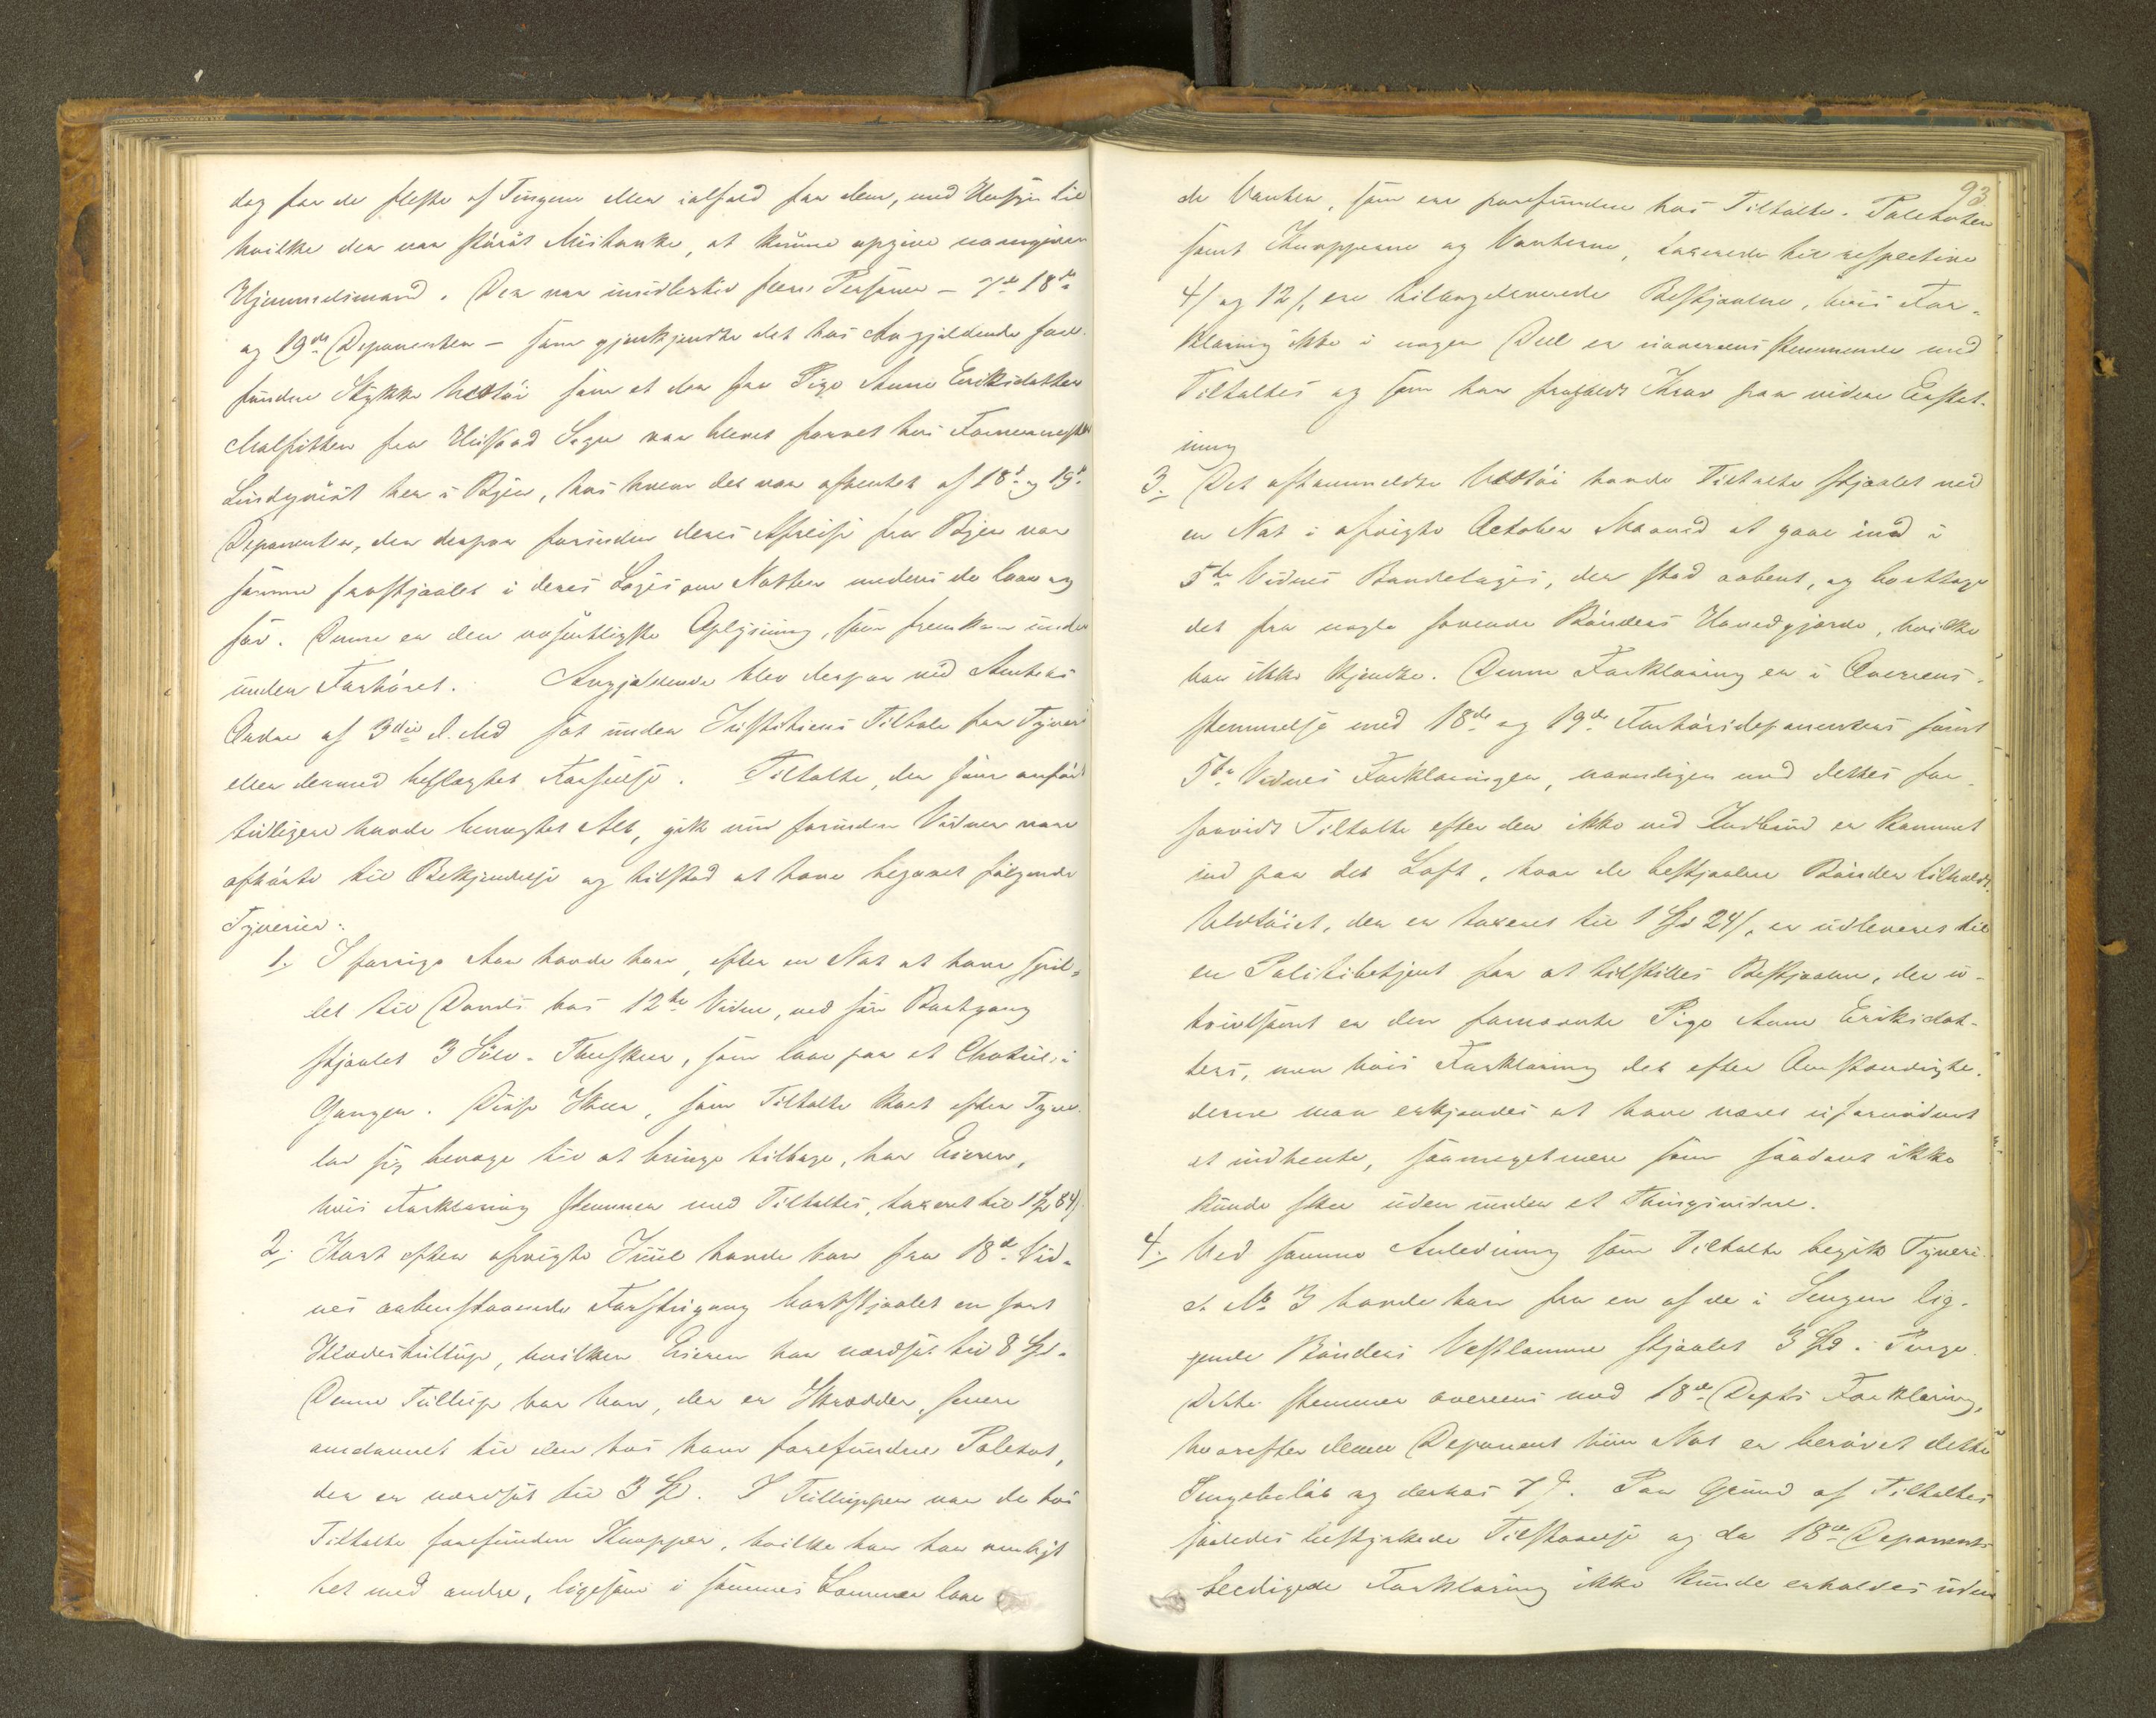 dog for de fleste af Tingene eller ialfald for dem, med Hensyn til
hvilke der var størst Mistanke, at kunne opgive navngiven
Hjemmelsmand. Der var imidlertid flere Personer – 7de 18de
og 19de Deponenter – som gjenkjendte det hos Angjeldende fore-
fundne Stykke Uldtøi som et der for Pige Anne Eriksdatter
fra Sogn var blevet farvet hos Farvermester
Lindqvist her i Byen, hos hvem det var afhentet af 18de og 19de
Deponenter, der derpaa forinden deres Afreise fra Byen var
samme frastjaalet i deres Logis om Natten medens de laae og
sov. Denne er den væsentligste Oplysning, som fremkom under
under Forhøret. Angjældende blev derpaa ved Amtets
Ordre af 3die d. Md sat under Justitiens Tiltale for Tyveri
eller dermed beslægtet Forseelse. Tiltalte, der som anført
tidligere havde benegtet Alt, gik nu forinden Vidner vare
afhørte til Bekjendelse og tilstod at have begaaet følgende
Tyverier:
1. I forrige Aar havde han, efter en Nat at have spil-
let til Dands hos 12te Vidne, ved sin Bortgang
stjaalet 3 Sølv-Theskeer, som laae paa et Chatul i
Gangen. Disse Skeer, som Tiltalte kort efter Tyve-
lod sig bevæge til at bringe tilbage, har Eieren,
hvis Forklaring stemmer med Tiltaltes, taxeret til 1 Spd 84 s.
2. Kort efter afvigte Juul havde han fra 18de Vid-
nes aabenstaaende Forstugang bortstjaalet en sort
Klædestullup, hvilken Eieren har værdsat til 8 Spd.
Denne Tullup har han, der er Skrædder, senere
omdannet til den hos ham forefundne Paletot,
der er værdsat til 3 Spd. I Tulluppen var de hos
Tiltalte forefunden Knapper, hvilke han har ombyt-
tet med andre, ligesom i sammes Lommer laae
93.
de Vanter, som ere forefundne hos Tiltalte. Paletoten
samt Knapperne og Vanterne, taxerede til respective
4 s og 12 s, ere tilbageleverede Bestjaalne, hvis For-
klaring ikke i nogen Deel er uovereensstemmende med
Tiltaltes og som har frafaldt Krav paa videre Erstat-
ning
3. Det ommeldte Uldtøi havde Tiltalte stjaalet ved
en Nat i afvigte October Maaned at gaae ind i
5te Vidnes Bondelogis, der stod aabent, og borttage
det fra nogle sovende Bønders Hovedgjærde, hvilke
han ikke kjendte. Denne Forklaring er i Overeens-
stemmelse med 18de og 19de Forhørsdeponenters samt
5te Vidnes Forklaringer, navnligen med dettes for-
saavidt Tiltalte efter den ikke ved Indbrud er kommet
ind paa det Loft, hvor de bestjaalne Bønder tilholdt.
Uldtøiet, der er taxeret til 1 Spd 24 s, er udleveret til
en Politibetjent for at tilstilles Bestjaalne, der u-
tvivlsomt er den fornævnte Pige Anne Eriksdat-
ters, men hvis Forklaring det efter Omstændighe-
derne maa erkjendes at have været ufornødent
at indhente, saameget mere som saadant ikke
kunde skee uden under et Thingsvidne.
4. Ved samme Anledning som Tiltalte begik Tyveri-
et No 3 havde han fra en af de i Sengen lig-
gende Bønders Vestlomme stjaalet 3 Spd i Penge.
Dette stemmer overeens med 18de Depts Forklaring,
hvorefter denne Deponent hiin Nat er berøvet dette
Pengebeløb og derhos 7 s. Paa Grund af Tiltaltes
saaledes bestyrkede Tilstaaelse og da 18de Deponents
beedigede Forklaring ikke kunde erholdes uden